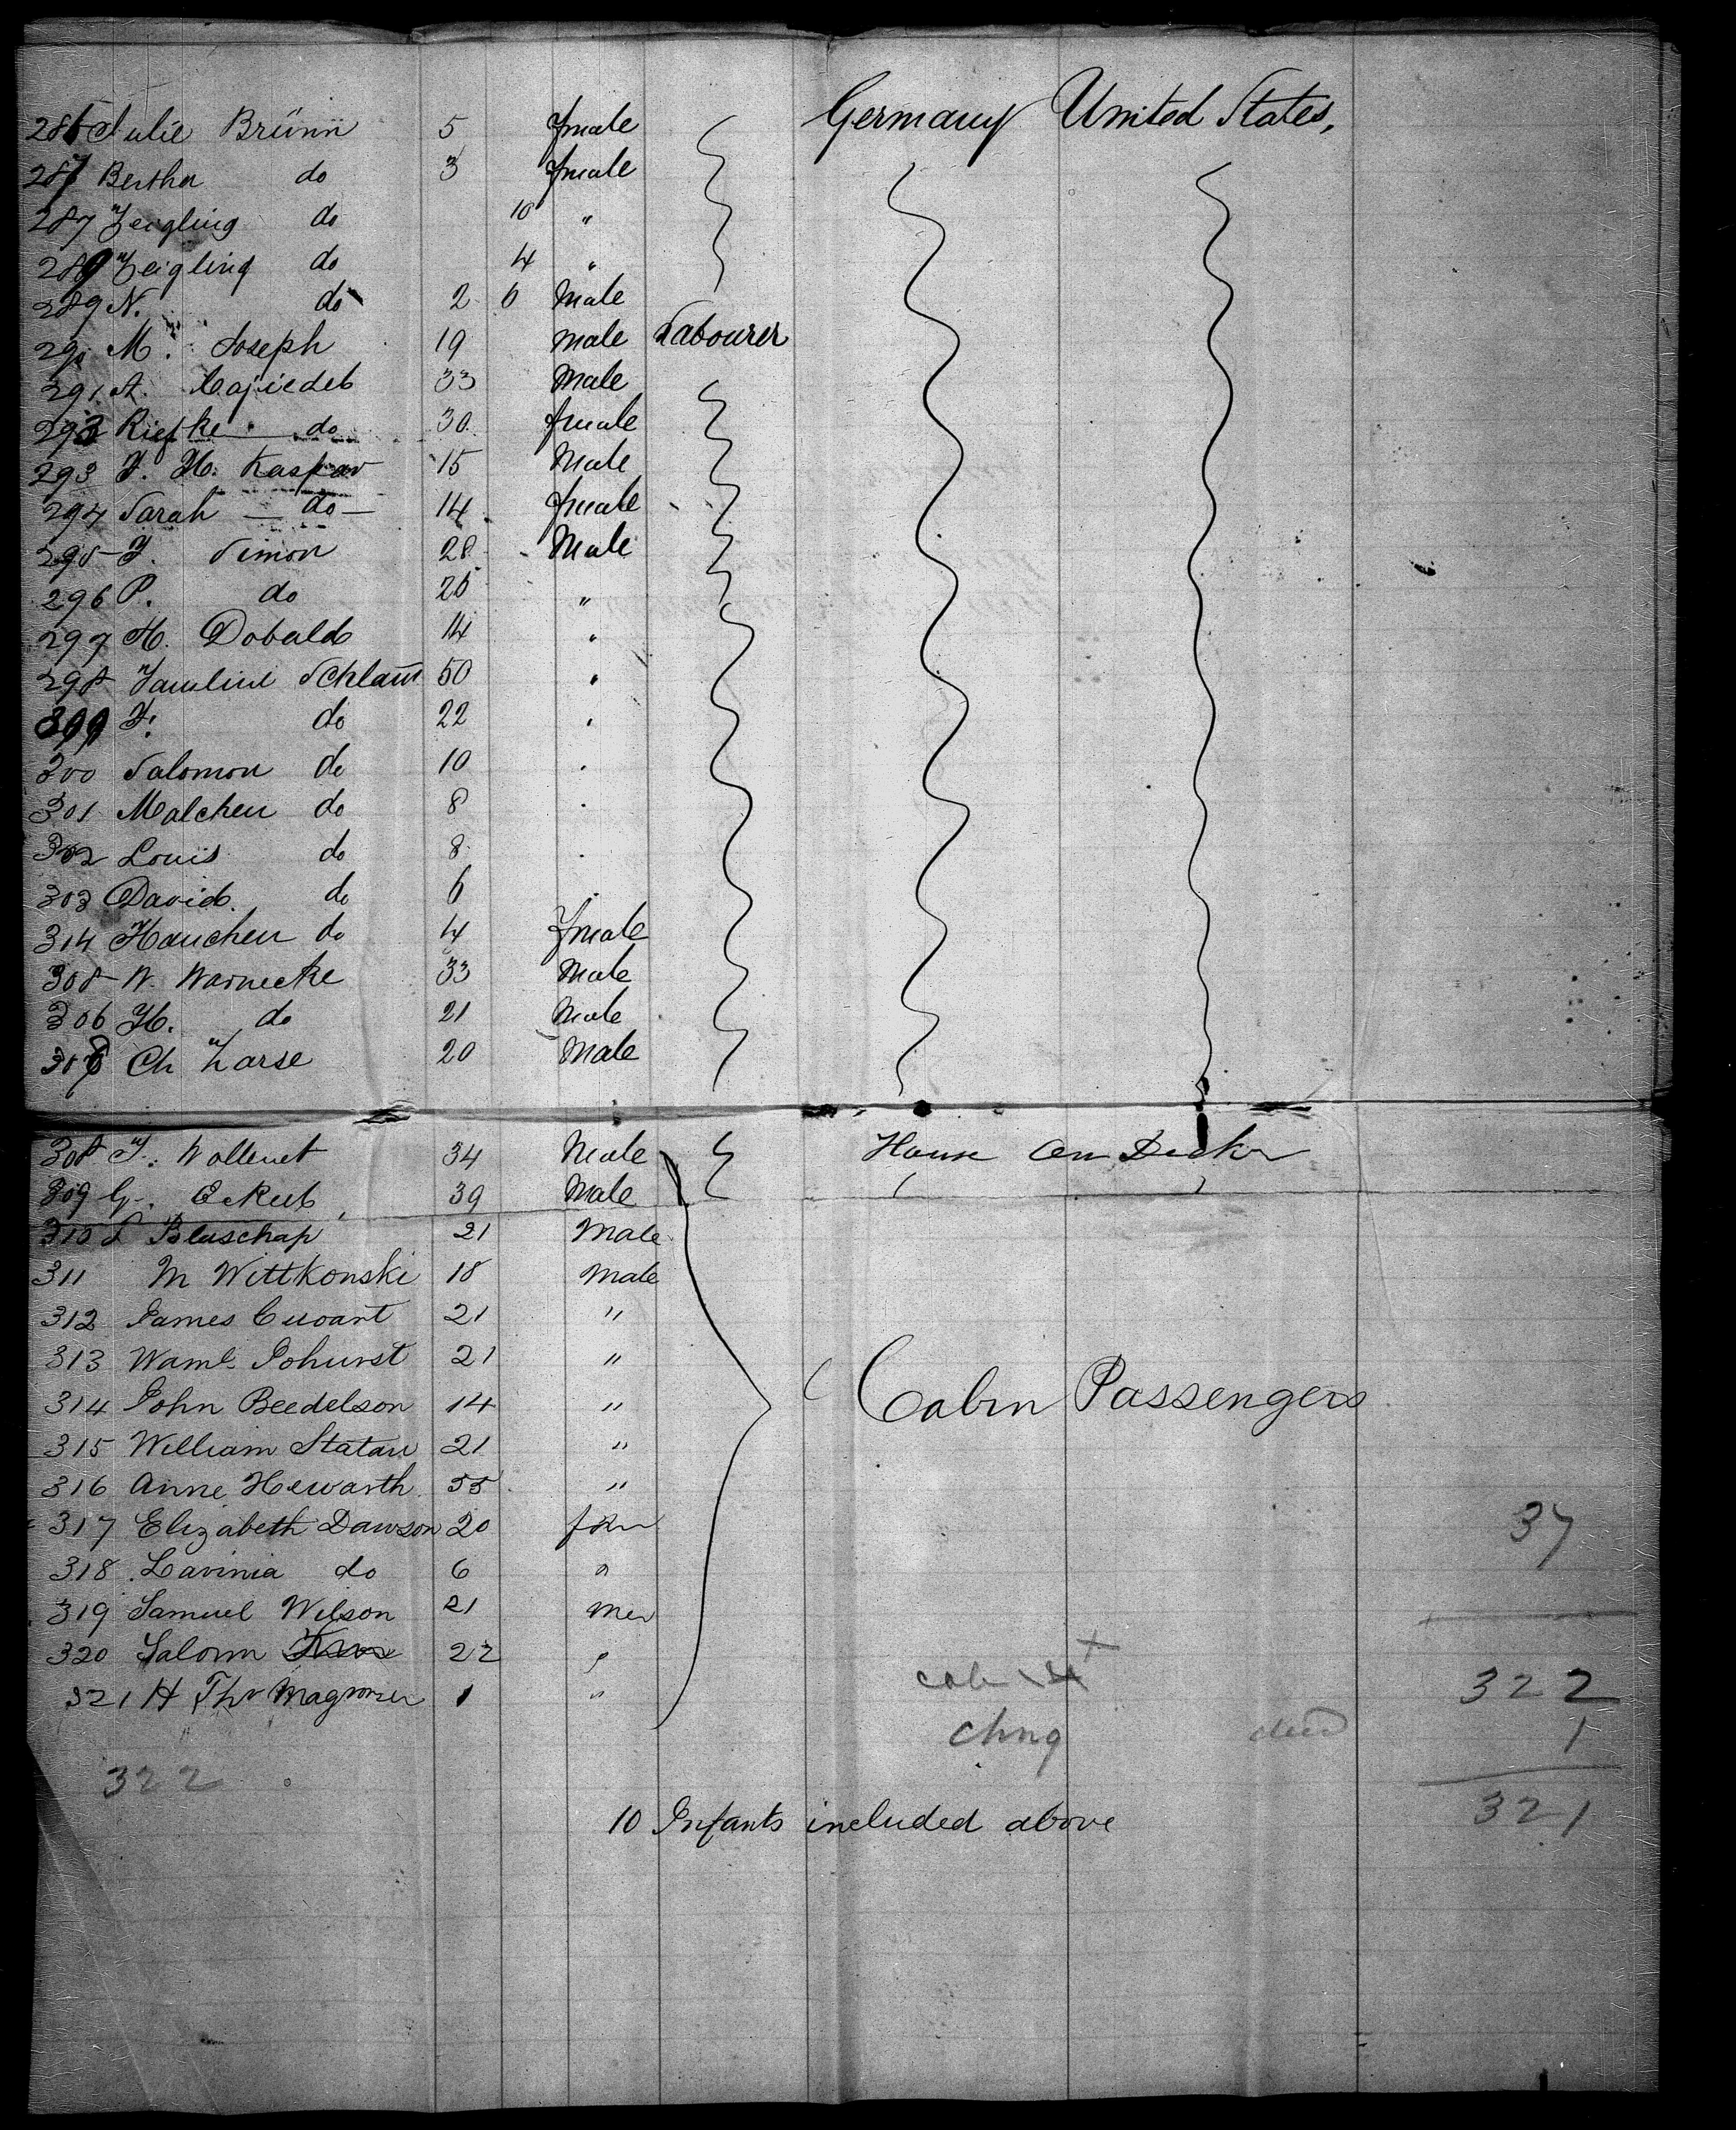 Germany United States,
286 Julie Brünn 5 female
287 Bertha do 3 female
287 Zeigling do 10 "
289 Zeigling do 4 "
289 N. do 2 6 Male
290 M. Joseph 19 male Labourer
291 A. 33 Male
292 Riefke do 30 female
293 J. H. Kaspar 15 Male
294 Sarah — do — 14 female
295 J. Simon 28 Male
296 P. do 26 "
297 H. Dobald 14 "
298 Pauline Schlam 50 "
399 J. do 22 "
300 Salomon do 10 "
301 Malchen do 8 "
302 Louis do 8 "
303 David do 6 "
314 Hanchen do 4 female
305 W. Warnecke 33 Male
306 H. do 21 Male
307 Ch Zarse 20 Male
308 J. Wollenet 34 Male House on Deck
309 G. 39 Male
310 Blaschap 21 Male
311 M Wittkonski 18 male
312 James Cuoart 21 "
313 Waml. Johurst 21 "
314 John Beedelson 14 " Cabin Passengers
315 William Statan 21 "
316 Anne Hewarth 55 "
317 Elizabeth Dawson 20 fem 37
318 Lavinia do 6 "
319 Samuel Wilson 21 men
320 Salomn 22 "
321 H Thr 1 " 322
chng died 1
322
10 Infants included above 321